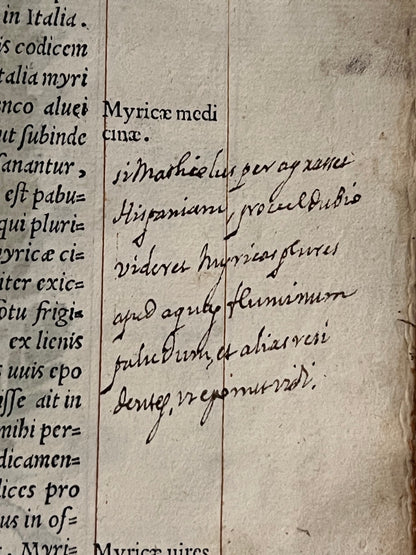 in Italia.
is codicem
talia myri
nco aluei
ut ſubinde
ſanantur,
eſt pabu=
qui pluri=
yricæ ci=
iter exic=
otu frigi=
ex lienis
s uuis epo
iſſe ait in
mihi per=
dicamen=
lices pro
us in of=
. Myri=
Myricæ medi
cinæ.
si Mathiolus peragrasset
Hispaniam, procul dubio
videret myricas plures
apud aquas fluminum
paludum, et alias resi
dentes, ut ego vidi.
Myricæ uires